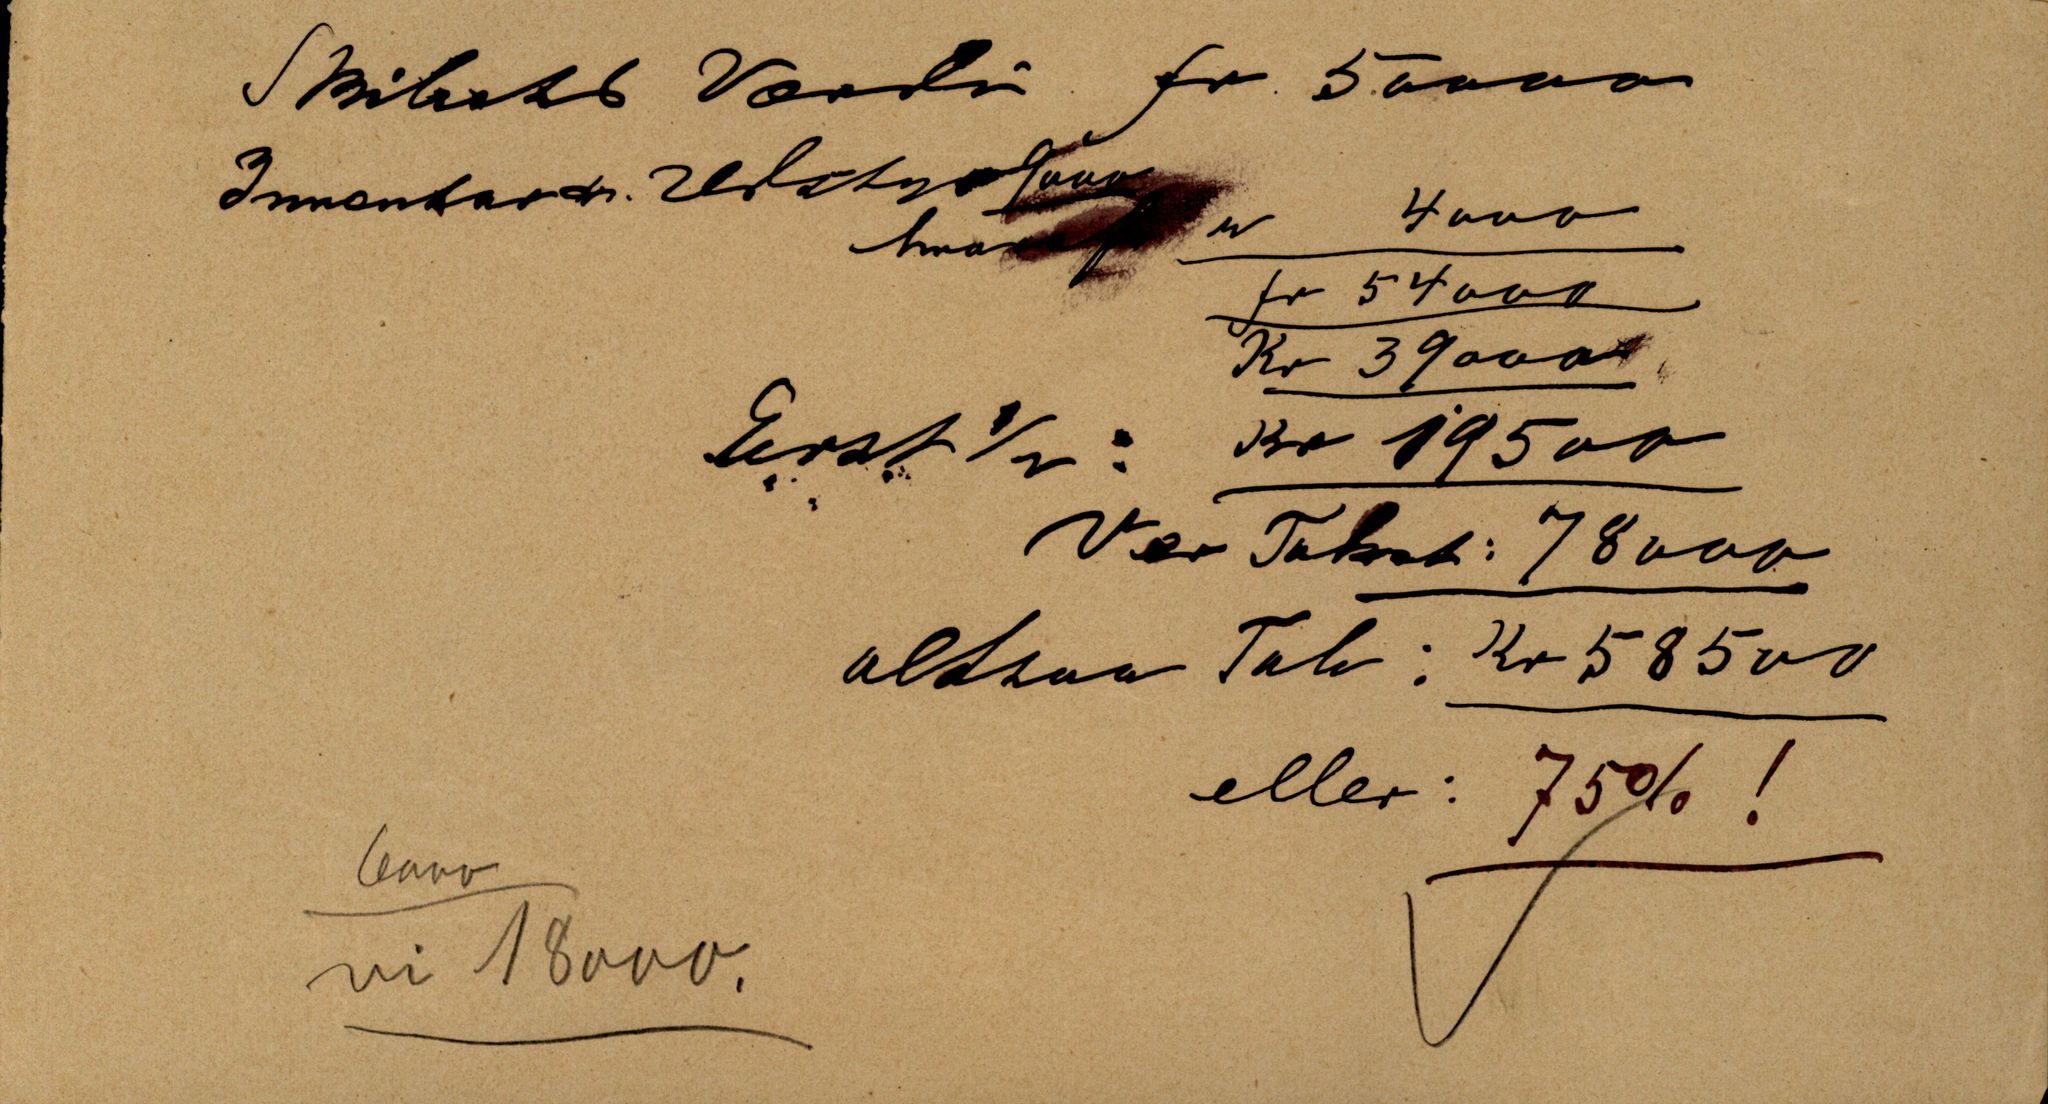 Skibets Værdi fr. 50000
Inventar m. Udstyr 9000
hvoraf " 4000
fr 54000
Kr 39000
Erst 1/2 : Kr 19500
Vor Takst : 78000
altsaa Tab : Kr 58500
eller : 75% !
6000
vi 18000.